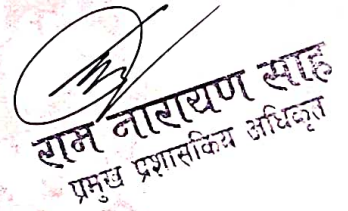 राम नारायण साह
प्रमुख प्रशासकिय अधिकृत